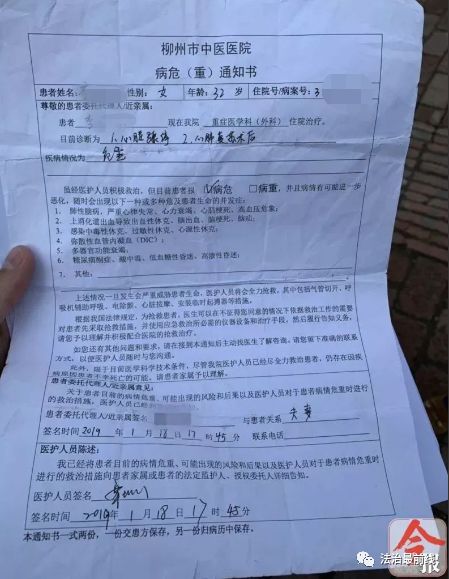 柳州市中医医院
病危（重）通知书
患者姓名： 性别：女 年龄：32 岁 住院号/病案号：3
尊敬的患者委托代理人/近亲属：
患者 李 现在我院 重症医学科（外科） 住院治疗。
目前诊断为 1.心脏骤停 2.心肺复苏术后
疾病情况为 危重
虽经医护人员积极救治，但目前患者报 ☑病危 □病重，并且病情有可能进一步
恶化，随时会出现以下一种或多种危及患者生命的并发症：
1. 肺性脑病，严重心律失常、心力衰竭、心肌梗死、高血压危象；
2. 上消化道出血导致出血性休克、脑出血、脑梗死、脑疝；
3. 感染中毒性休克、过敏性休克、心源性休克；
4. 弥散性血管内凝血（DIC）；
5. 多器官功能衰竭；
6. 糖尿病酮症、酸中毒、低血糖性昏迷、高渗性昏迷；
7. 其他：
上述情况一旦发生会严重威胁患者生命，医护人员将会全力抢救，其中包括气管切开、呼
吸机辅助呼吸、电除颤、心脏按摩、安装临时起搏器等措施。
根据我国法律规定，为抢救患者，医生可以在不征得您同意的情况下依据救治工作的需要
对患者先采取抢救措施，并使用应急救治所必需的仪器设备和治疗手段，然后履行告知义务，
请您予以理解并积极配合医院的抢救治疗。
如您还有其他问题和要求，请在接到本通知后主动找医生了解咨询。请您留下准确的联系
方式，以便医护人员随时与您沟通。
此外，限于目前医学科学技术条件，尽管我院医护人员已经尽全力救治患者，仍存在因疾
病原因患者不幸死亡的可能，请患者家属予以理解。
患者委托代理人/近亲属意见：
关于患者目前的病情危重、可能出现的风险和后果以及医护人员对于患者病情危重时进行
的救治措施，医护人员已经
患者委托代理人/近亲属签名 与患者关系 夫妻
签名时间 2019 年 1 月 18 日 17 时 45 分 联系电话
医护人员陈述：
我已经将患者目前的病情危重、可能出现的风险和后果以及医护人员对于患者病情危重时
进行的救治措施向患者家属或患者的法定监护人、授权委托人详细告知。
医护人员签名
签名时间 2019 年 1 月 18 日 17 时 45 分
本通知书一式两份，一份交患方保存，另一份归病历中保存。
今报
法治最前线